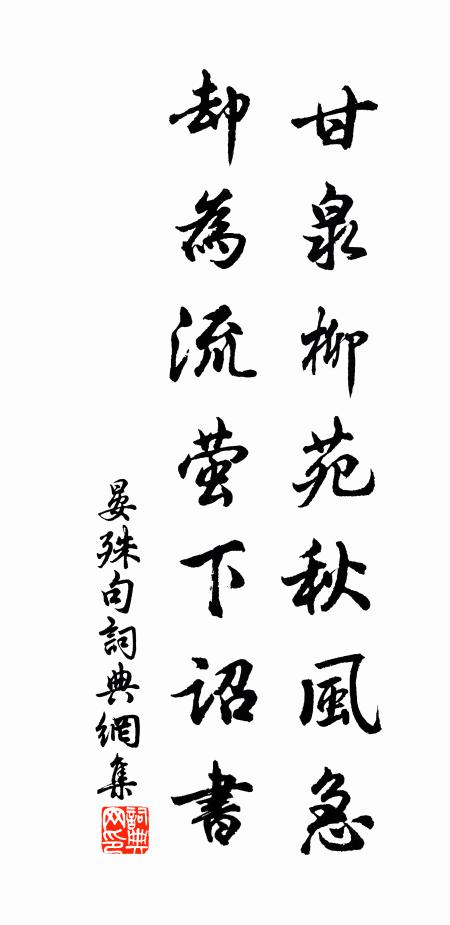 甘泉柳苑秋風急
却為流萤下詔書
晏殊句詞典網集
詞典网印